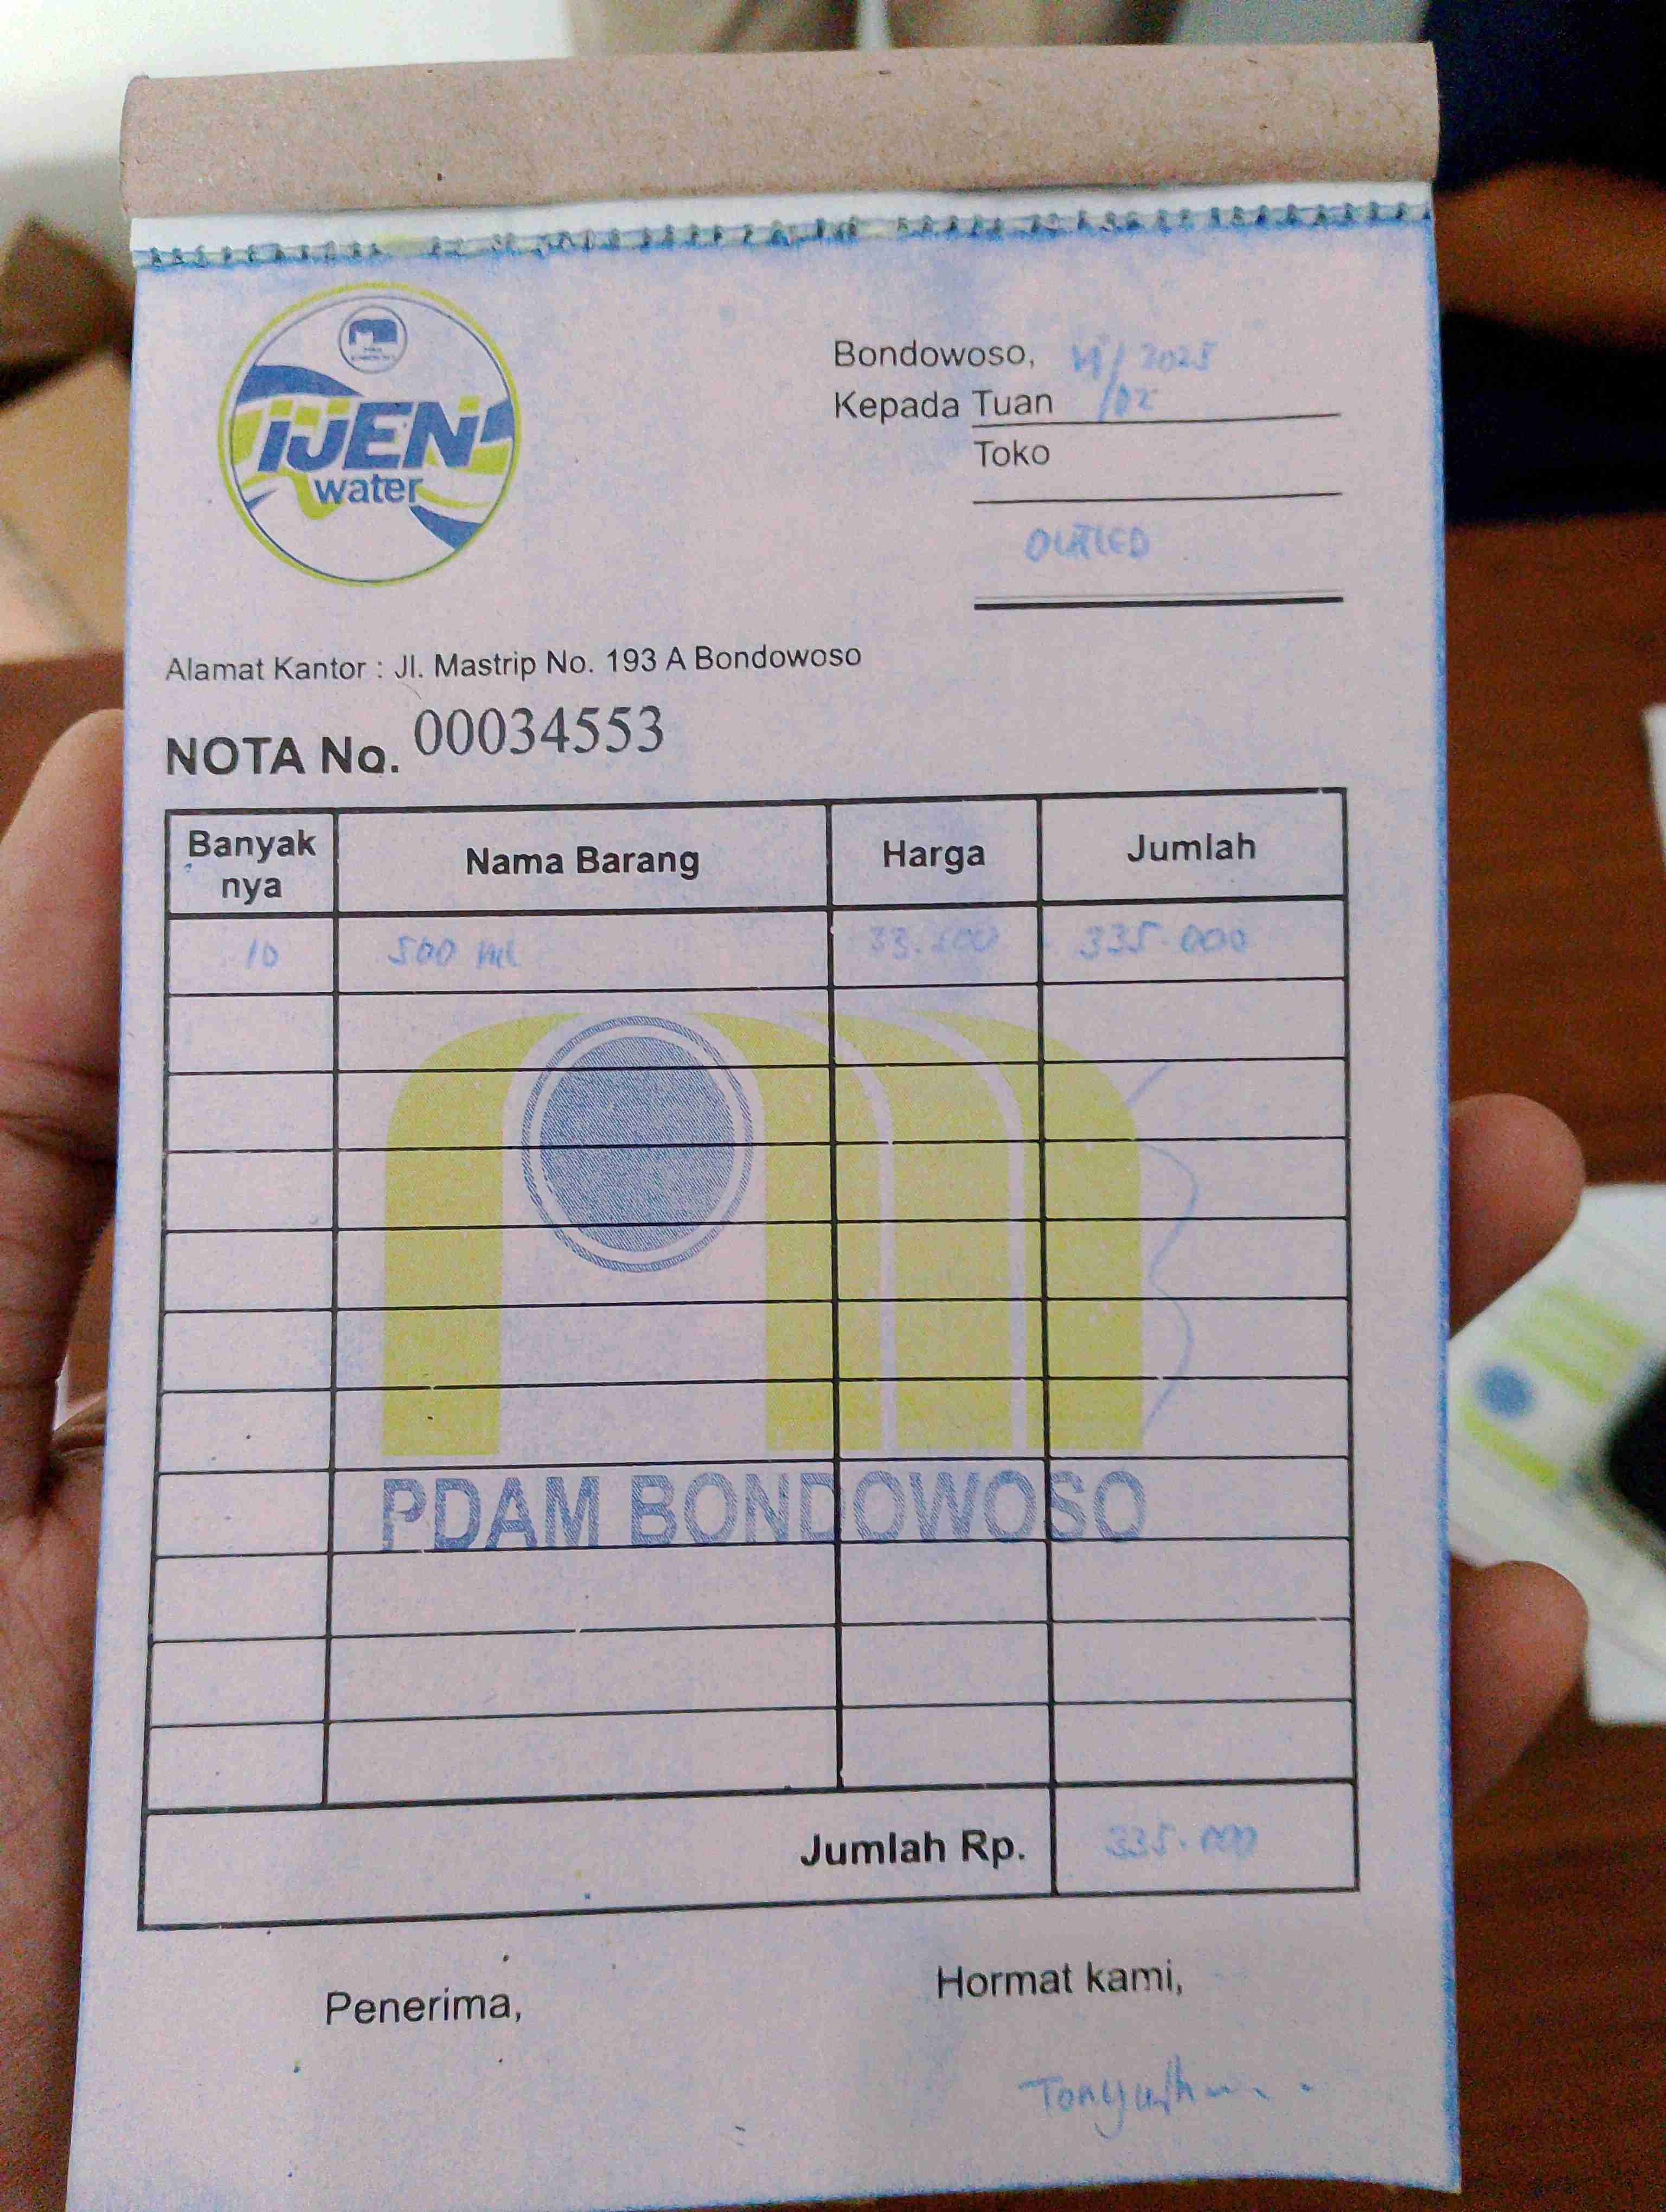 IJEN
water
Bondowoso, /2025
Kepada Tuan /02
Toko
OUTLED
Alamat Kantor : Jl. Mastrip No. 193 A Bondowoso
NOTA No. 00034553
Banyak nya Nama Barang Harga Jumlah
10 500 ml 33.500 335.000
PDAM BONDOWOSO
Jumlah Rp. 335.000
Penerima, Hormat kami,